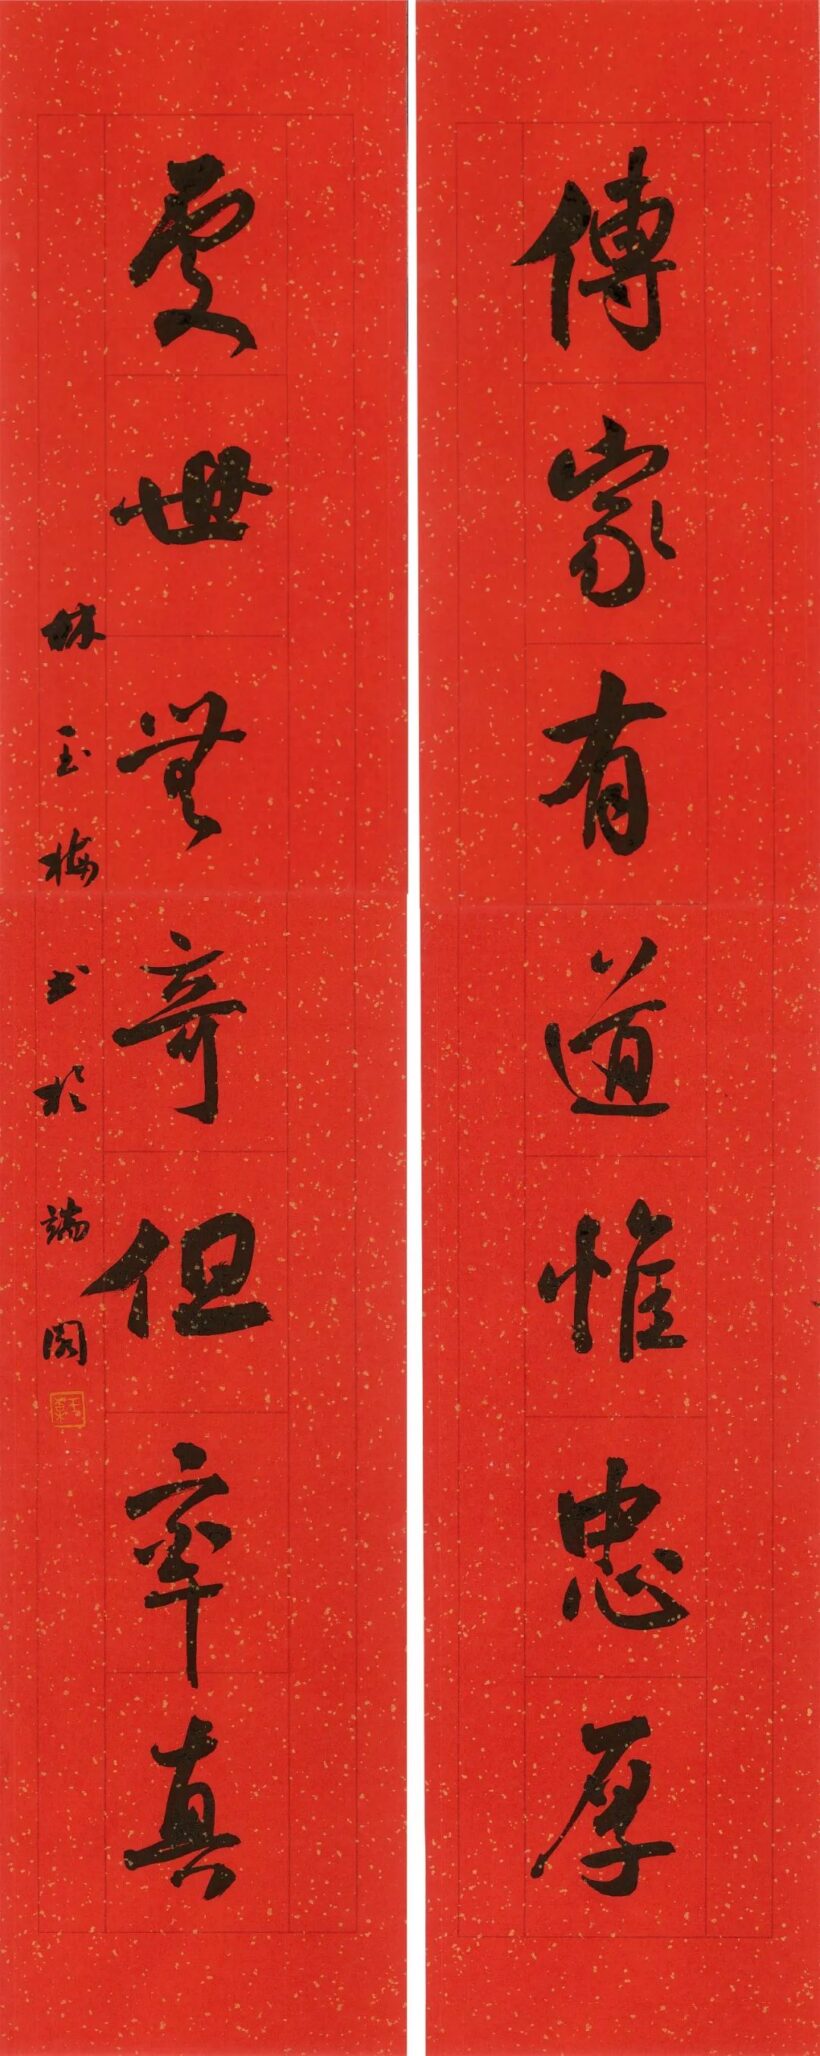 傳家有道惟忠厚
處世無奇但率真
林玉梅书於端阁